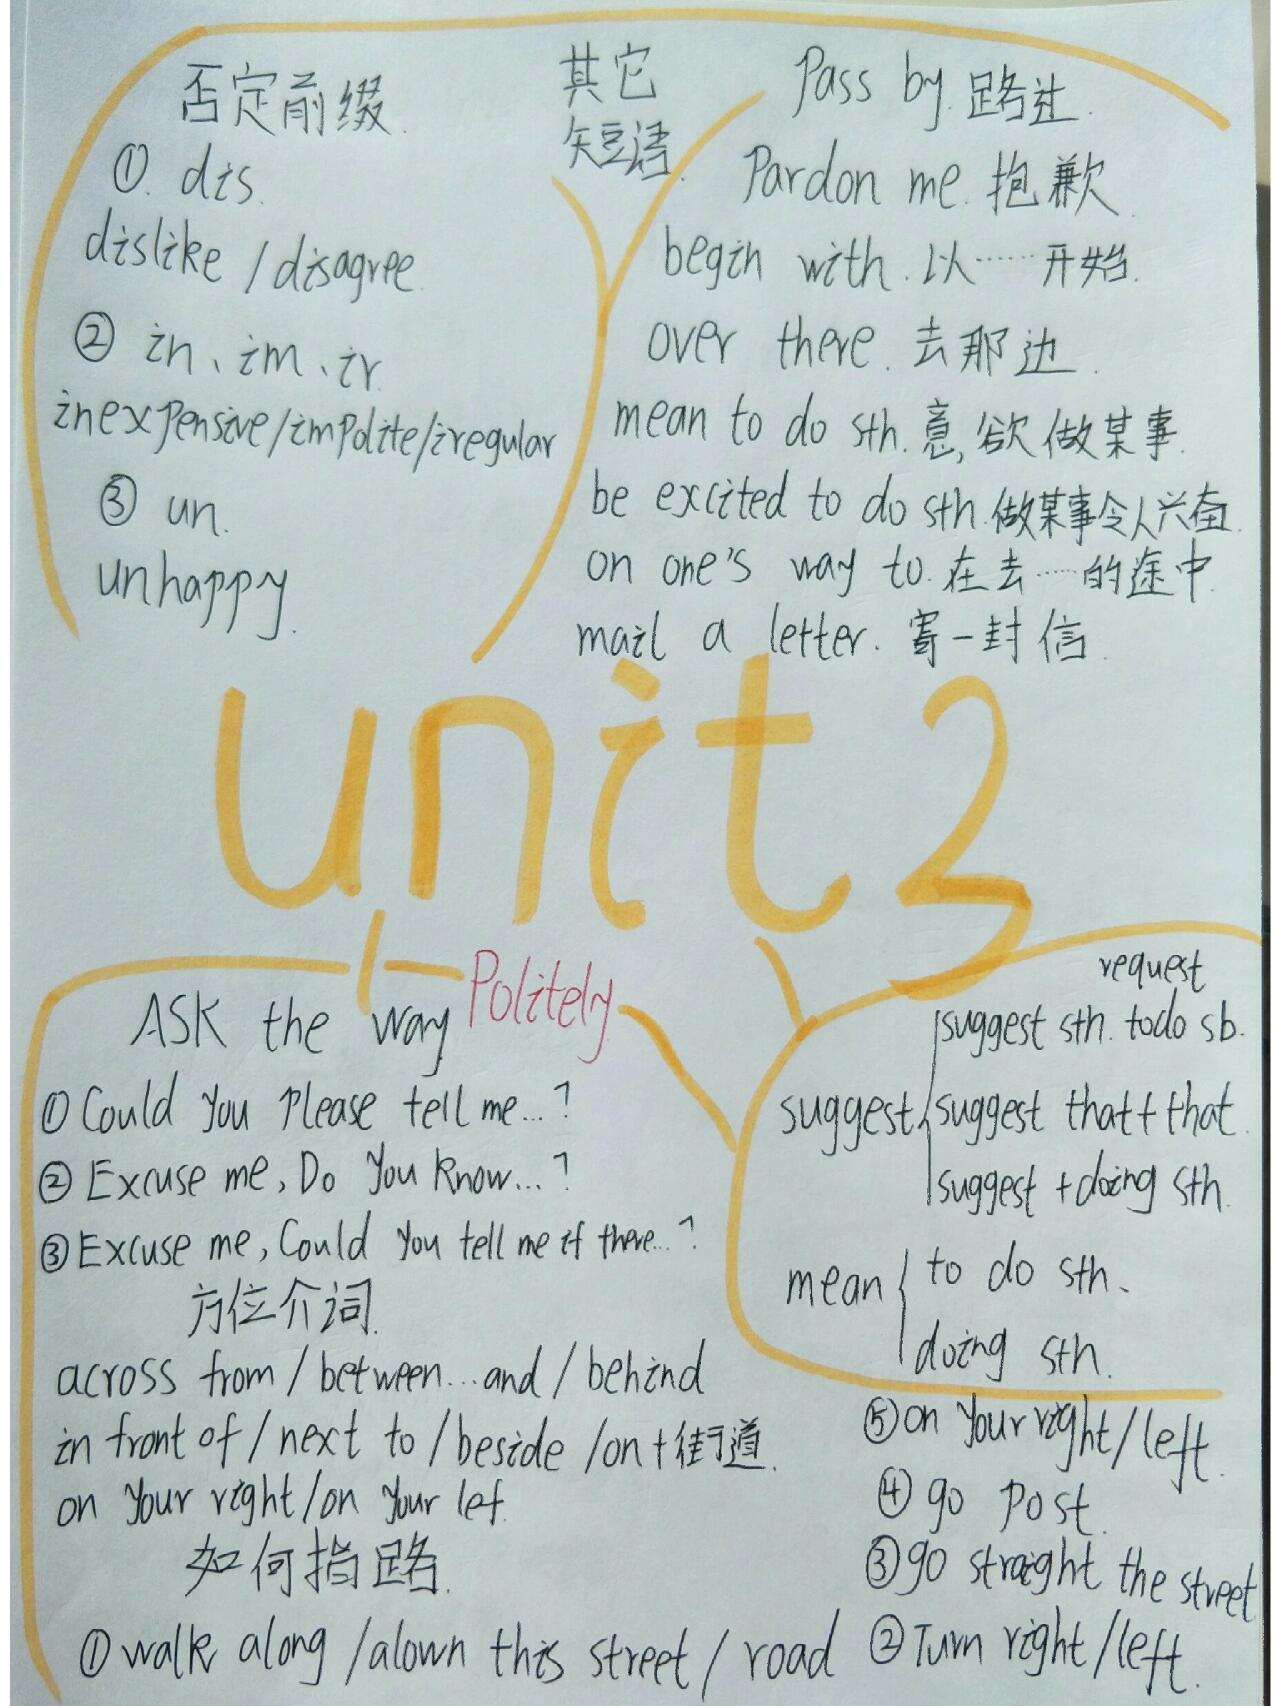 否定前缀.
① dis.
dislike / disagree.
② in、im、ir.
inexpensive/impolite/iregular
③ un.
unhappy.
其它
短语.
Pass by. 路过.
Pardon me. 抱歉.
begin with. 以……开始.
over there. 去那边.
mean to do sth. 意,欲做某事.
be excited to do sth. 做某事令人兴奋.
on one's way to. 在去……的途中.
mail a letter. 寄一封信.
unit3
Politely
ASK the way
① Could you please tell me...?
② Excuse me, Do you know...?
③ Excuse me, Could you tell me if there...?
方位介词.
across from / between...and / behind
in front of / next to / beside / on + 街道.
on your right / on your lef.
如何指路.
① walk along / alown this street / road
② Turn right / left.
③ go straight the street
④ go post.
⑤ on your right / left.
request
suggest
suggest sth. todo sb.
suggest that + that.
suggest + doing sth.
mean
to do sth、
doing sth.